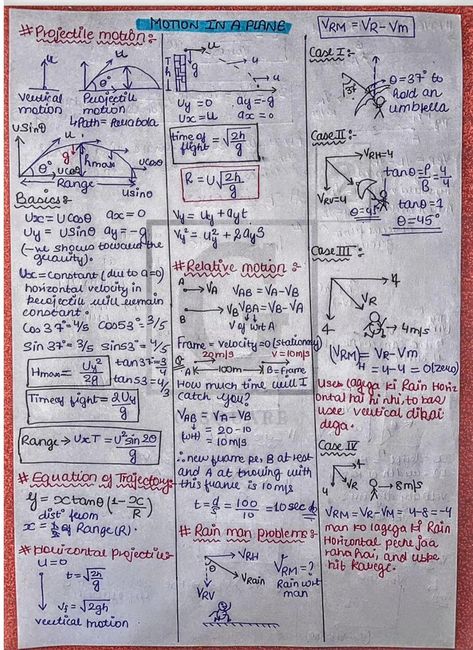 MOTION IN A PLANE
#Projectile motion:-
u
u
Vertical motion
Projectile motion
↳Path = Parabola
usinθ
u
g
hmax
ucosθ
θ°
ucosθ
Range
usinθ
Basics:-
Ux = Ucosθ ax = 0
Uy = Usinθ ay = -g
(-ve shows toward the
gravity).
Ux = constant (du to a=0)
horizontal velocity in
projectile will remain
constant.
Cos 37° = 4/5 Cos53° = 3/5
Sin 37° = 3/5 Sin53° = 4/5
Hmax = Uy²/2g
tan37 = 3/4
tan53 = 4/3
Time of flight = 2Uy/g
Range → Ux T = U² sin 2θ/g
#Equation of Trajectory
y = x tanθ (1 - x/R)
dist from
of Range (R).
#Horizontal projectile
u = 0
t = √2h/g
vf = √2gh
vertical motion
u
h
g
u
Uy = 0 ay = -g
Ux = u ax = 0
time of flight = √2h/g
R = U√2h/g
Vy = Uy + ayt
Vy² = uy² + 2ays
#Relative motion:-
A → VA VAB = VA - VB
B → VB VBA = VB - VA
V of wrt A
Frame = velocity = 0 (stationary)
20m/s V = 10m/s
A 100m B = frame
How much time will I
catch you?
VAB = VA - VB
(wrt) = 20 - 10
= 10 m/s
∴ new frame pe, B at rest
and A at moving with
this frame is 10 m/s
t = d/s = 100/10 = 10 sec
#Rain man problems:-
VRH
θ
VRain
VRV
VRM = ?
Rain wrt
man
VRM = VR - Vm
Case I:-
37°
θ = 37° to
hold an
umbrella
Case II:-
VRH = 4
VRV = 4
θ = 45°
tanθ = P/B = 4/4
tanθ = 1
θ = 45°
Case III:-
4
VR
4
4 m/s
(VRM)H = VR - Vm
= 4 - 4 = 0 (zero)
Usee lagega ki Rain Horiz-
ontal hai hi nhi, to bas
usee vertical dikai
dega.
Case IV
4
VR
4
8 m/s
VRM = VR - VM = 4 - 8 = -4
man ko lagega ki Rain
Horizontal peche jaa
raha hai, and uske
hit karege.